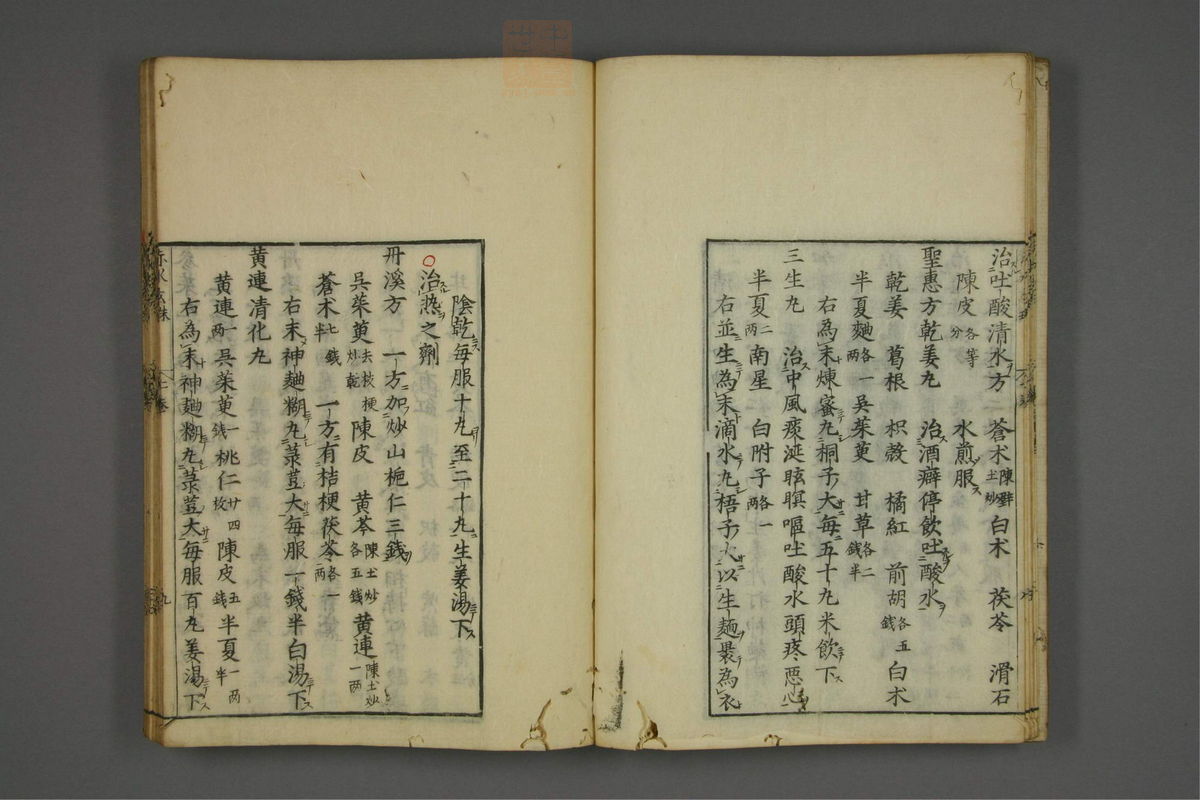 治吐酸清水方 蒼朮陳壁土炒白朮 茯苓 滑石
陳皮各等分 水煎服
聖惠方乾姜丸 治酒癖停飲吐酸水
乾姜 葛根 枳殻 橘紅 前胡各五錢白朮
半夏麯各一两吳茱萸 甘草各二錢半
右為末煉蜜丸桐子大每五十丸米飲下
三生丸 治中風痰涎眩瞑嘔吐酸水頭疼惡心
半夏二两南星 白附子各一两
右並生為末滴水丸梧子大以生麺衮為衣
陰乾每服十丸至二十丸生姜湯下
○治热之劑
丹溪方 一方加炒山栀仁三錢
吳茱萸去枝梗炒乾陳皮 黄芩陳土炒各五錢黄連陳土炒一两
蒼朮七錢半 一方有桔梗茯苓各一两
右末神麯糊丸菉荳大每服一錢半白湯下
黄連清化丸
黄連一两吳茱萸一錢桃仁廿四枚陳皮五錢半夏一两半
右為末神麯糊丸菉荳大每服百丸姜湯下